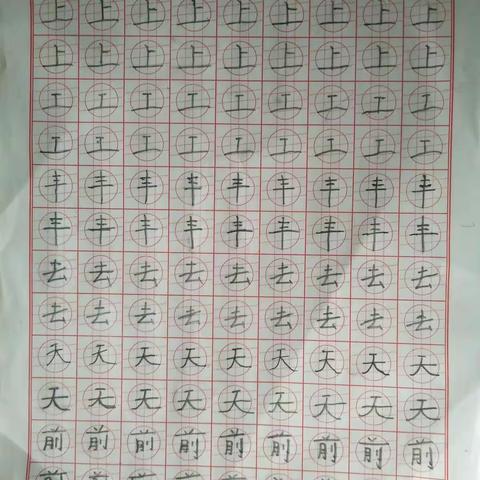 上上上上上上上上上
上上上上上上上上上
工工工工工工工工工
工工工工工工工工工
丰丰丰丰丰丰丰丰丰
丰丰丰丰丰丰丰丰丰
去去去去去去去去去
去去去去去去去去去
天天天天天天天天天
天天天天天天天天天
前前前前前前前前前